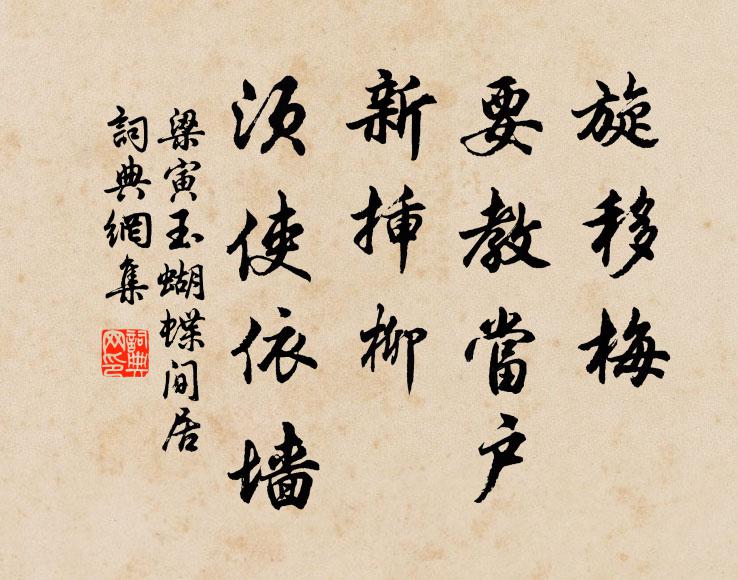 旋移梅
要教當户
新揷柳
須使依墙
梁寅玉蝴蝶间居
詞典網集
詞典
网印